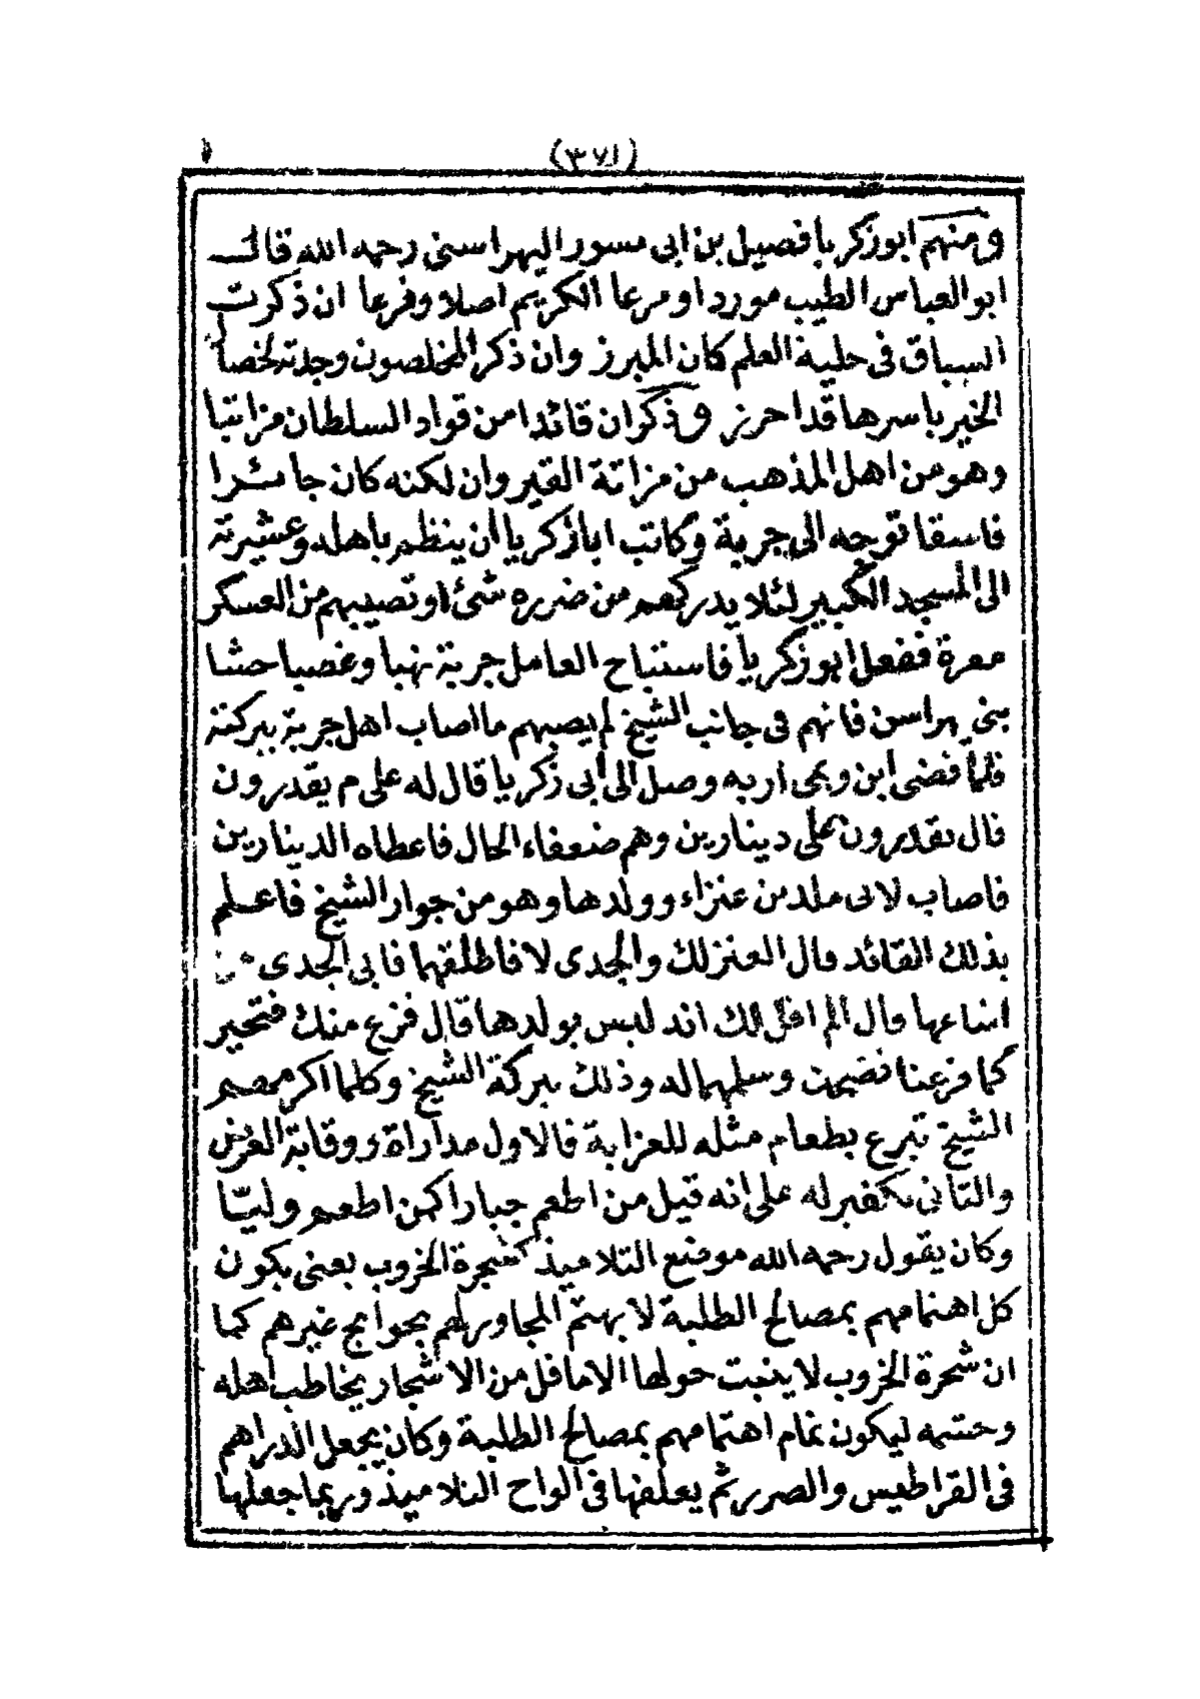 (٣٧١)
ومنهم ابو زكريا فصيل بن ابي مسور اليهراسني رحمه الله قال
ابو العباس الطيب موردا ومرعا الكريم اصلا وفرعا ان ذكرت
السباق في حلبة العلم كان المبرز وان ذكر المخلصون وجدته لخصال
الخير باسرها قد احرز وذكر ان قائدا من قواد السلطان مزاتيا
وهو من اهل المذهب من مزاتة القيروان لكنه كان جائرا
فاسقا توجه الى جربة وكاتب ابا زكريا أن ينظم باهله وعشيرته
الى المسجد الكبير لئلا يدركهم من ضرره شئ او تصيبهم من العسكر
معرة ففعل ابو زكريا فاستباح العامل جربة نهبا وغصبا حشا
بني يهراسن فانهم في جانب الشيخ لم يصبهم ما اصاب اهل جربة ببركته
فلما قضى ابن ويمى اربه وصل الى أبي زكريا قال له على م يقدرون
قال يقدرون على دينارين وهم ضعفاء الحال فاعطاه الدينارين
فاصاب لابي ملد من عنزاء وولدها وهو من جوار الشيخ فاعلم
بذلك القائد قال العنز لك والجدى لا فاطلقهما فابى الجدى من
اتباعها قال الم اقل لك انه ليس بولدها قال فزع منك فتحير
كما فزعنا فضحك وسلمهما له وذلك ببركة الشيخ وكلما اكرمهم
الشيخ تبرع بطعام مثله للعزابة فالاول مداراة ووقاية العرض
والثاني تكفير له على انه قيل من اطعم جبارا كمن اطعم وليّا
وكان يقول رحمه الله موضع التلاميذ كشجرة الخروب يعنى يكون
كل اهتمامهم بمصالح الطلبة لا يهتم المجاور لهم بحوايج غيرهم كما
ان شجرة الخروب لا ينبت حولها الا ما قل من الاشجار يخاطب اهله
وحشمه ليكون تمام اهتمامهم بمصالح الطلبة وكان يجعل الدراهم
في القراطيس والصرر ثم يعلقها في ألواح التلاميذ وربما جعلها